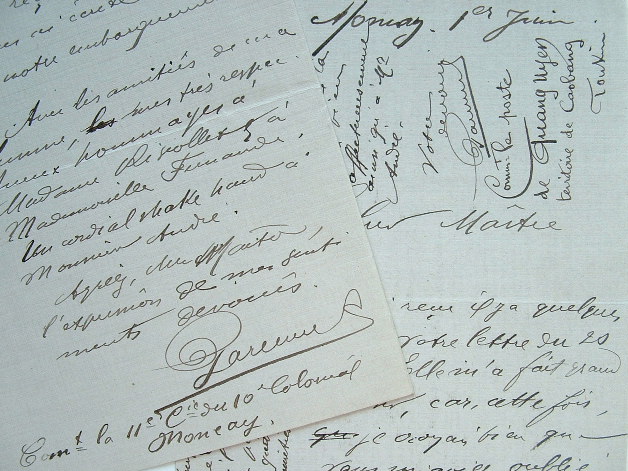 notre embarquement
Avec les amitiés de ma
femme, les mes très respec-
tueux hommages à
Madame Rigollet & à
Mademoiselle Fernande.
Un cordial shake hand à
Monsieur André.
Agréez, cher Maître,
l'expression de mes senti
ments dévoués.
Comt la 11e Cie du 10e Colonial
Moncay.
Moncay, 1er Juin.
bien
affectueusement
ainsi qu'à Mr
André.
Votre
dévoué
Commt le poste
de Quang Uyen
territoire de Caobang
Tonkin
Maître
il y a quelques
votre lettre du 20
Elle m'a fait grand
car, cette fois,
je voyais bien que
vous m'aviez oublié